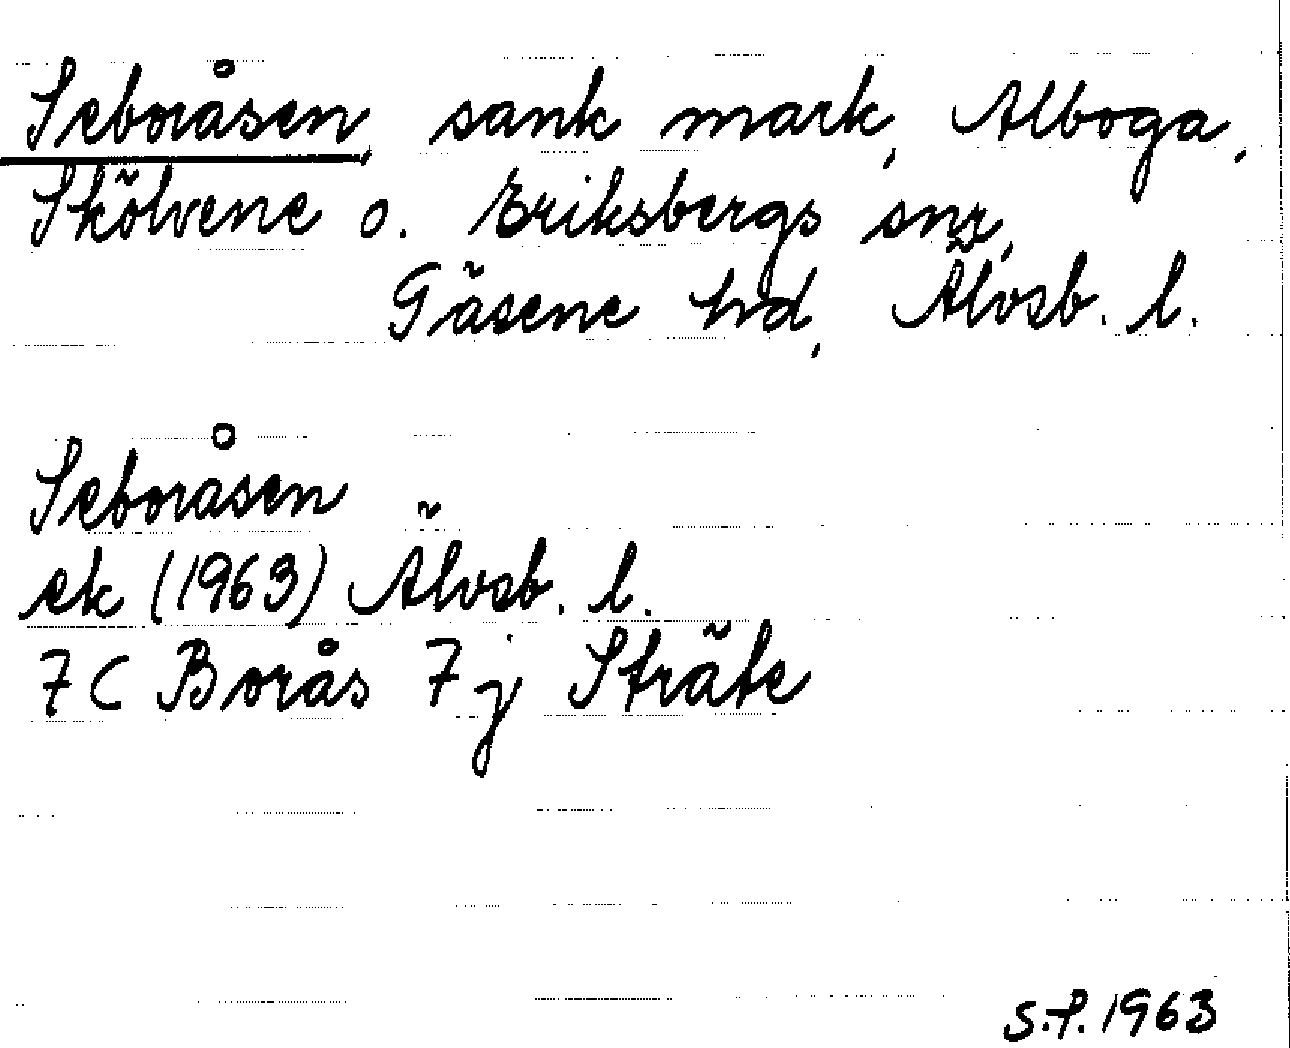 Seboråsen, sank mark, Alboga,
Skölvene o. Eriksbergs snr,
Gäsene hd, Älvsb. l.
Seboråsen
ek (1963) Älvsb. l.
7 C Borås 7 j Sträte
S.P. 1963